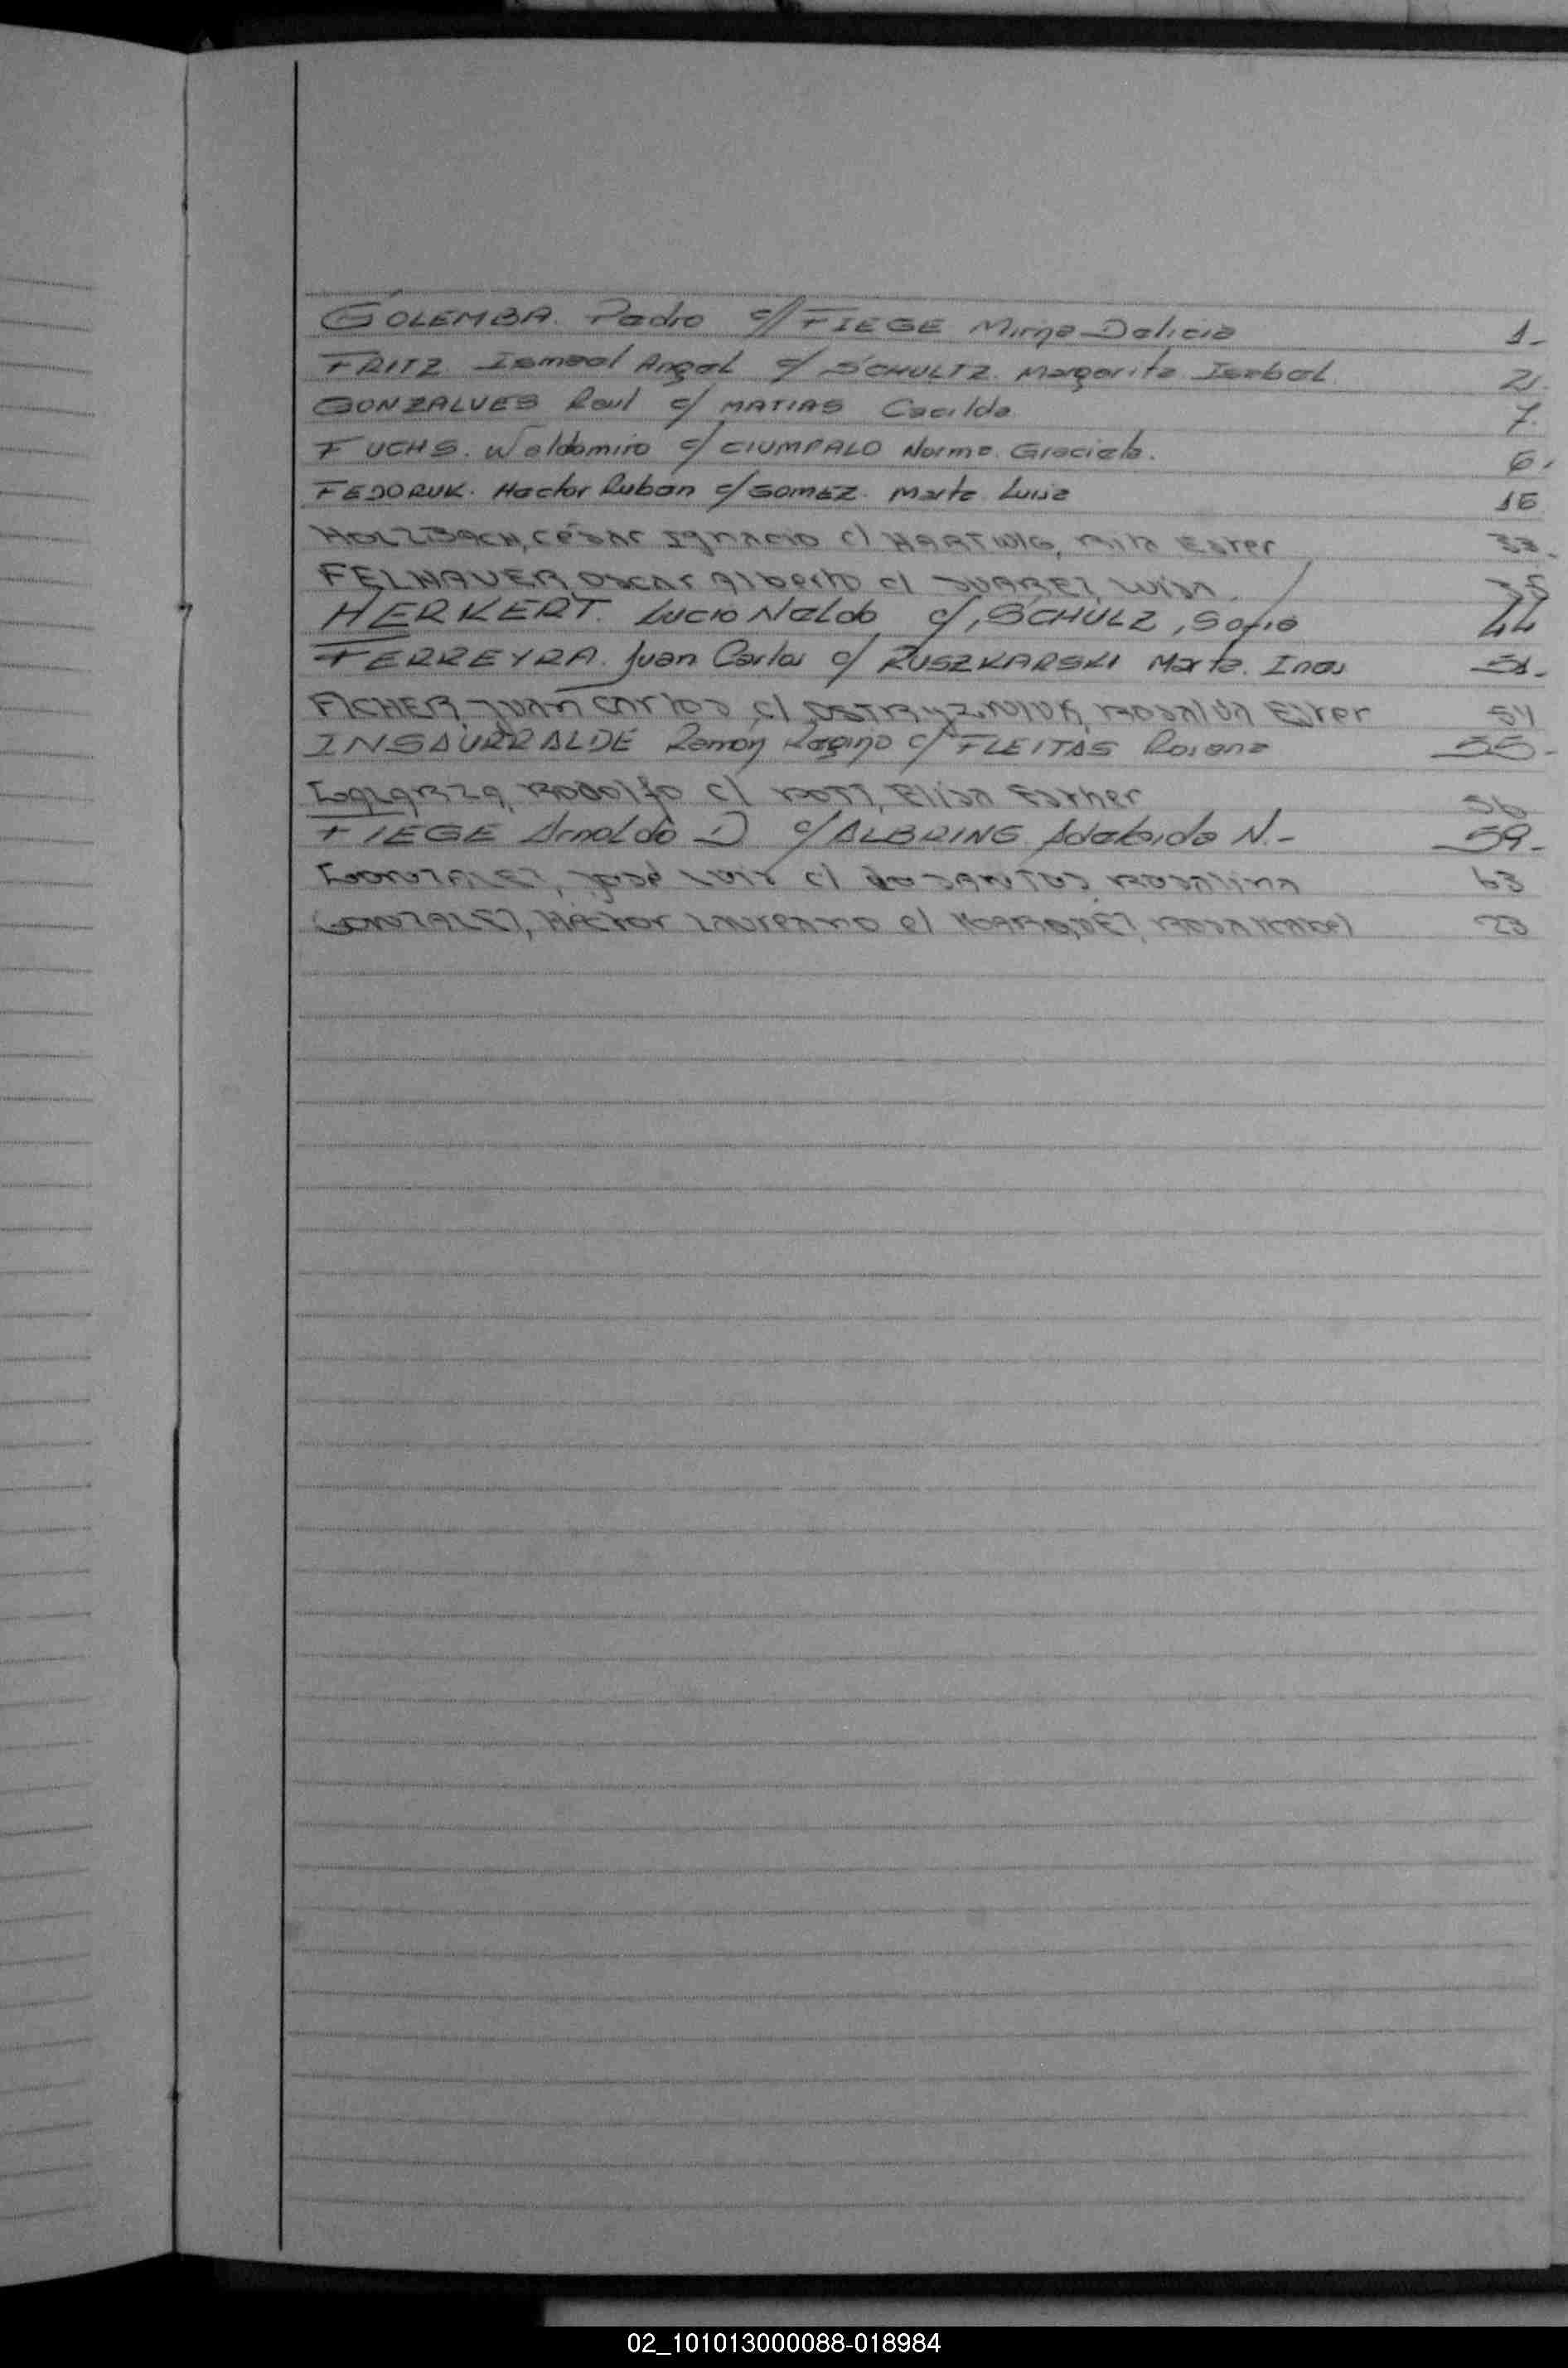 GOLEMBA. Pedro c/ FIEGE Mirna Delicia 1-
FRITZ Ismael Angel c/ SCHULTZ. Margarita Isabel. 21.
GONZALVES Raul c/ MATIAS Cacilda 7.
FUCHS. Waldomiro c/ CIUMPALO Norma. Graciela. 6.
FEDORUK. Hector Ruben c/ GOMEZ. Marta. Luisa 15
HOLZBACH, César Ignacio c/ HARTWIG, Rita Ester 33.
FELHAUER, Oscar Alberto c/ SUAREZ, Luisa. 35
HERKERT. Lucio Naldo c/, SCHULZ, Sofia 44
FERREYRA. Juan Carlos c/ RUSZKARSKI Marta. Ines 51.
FICHER, Juan Carlos c/ Ester 54
INSAURRALDE Ramón Regino c/ FLEITAS Rosana 55-
Rodolfo c/ Elisa Esther 56
FIEGE Arnoldo D c/ ALBRING Adelaida N.- 59-
GONZALEZ, José Luis c/ SANTOS Rosalina 63
GONZALEZ, Hector Laureano c/ MARQUEZ, Rosa Mabel 23
02_101013000088-018984